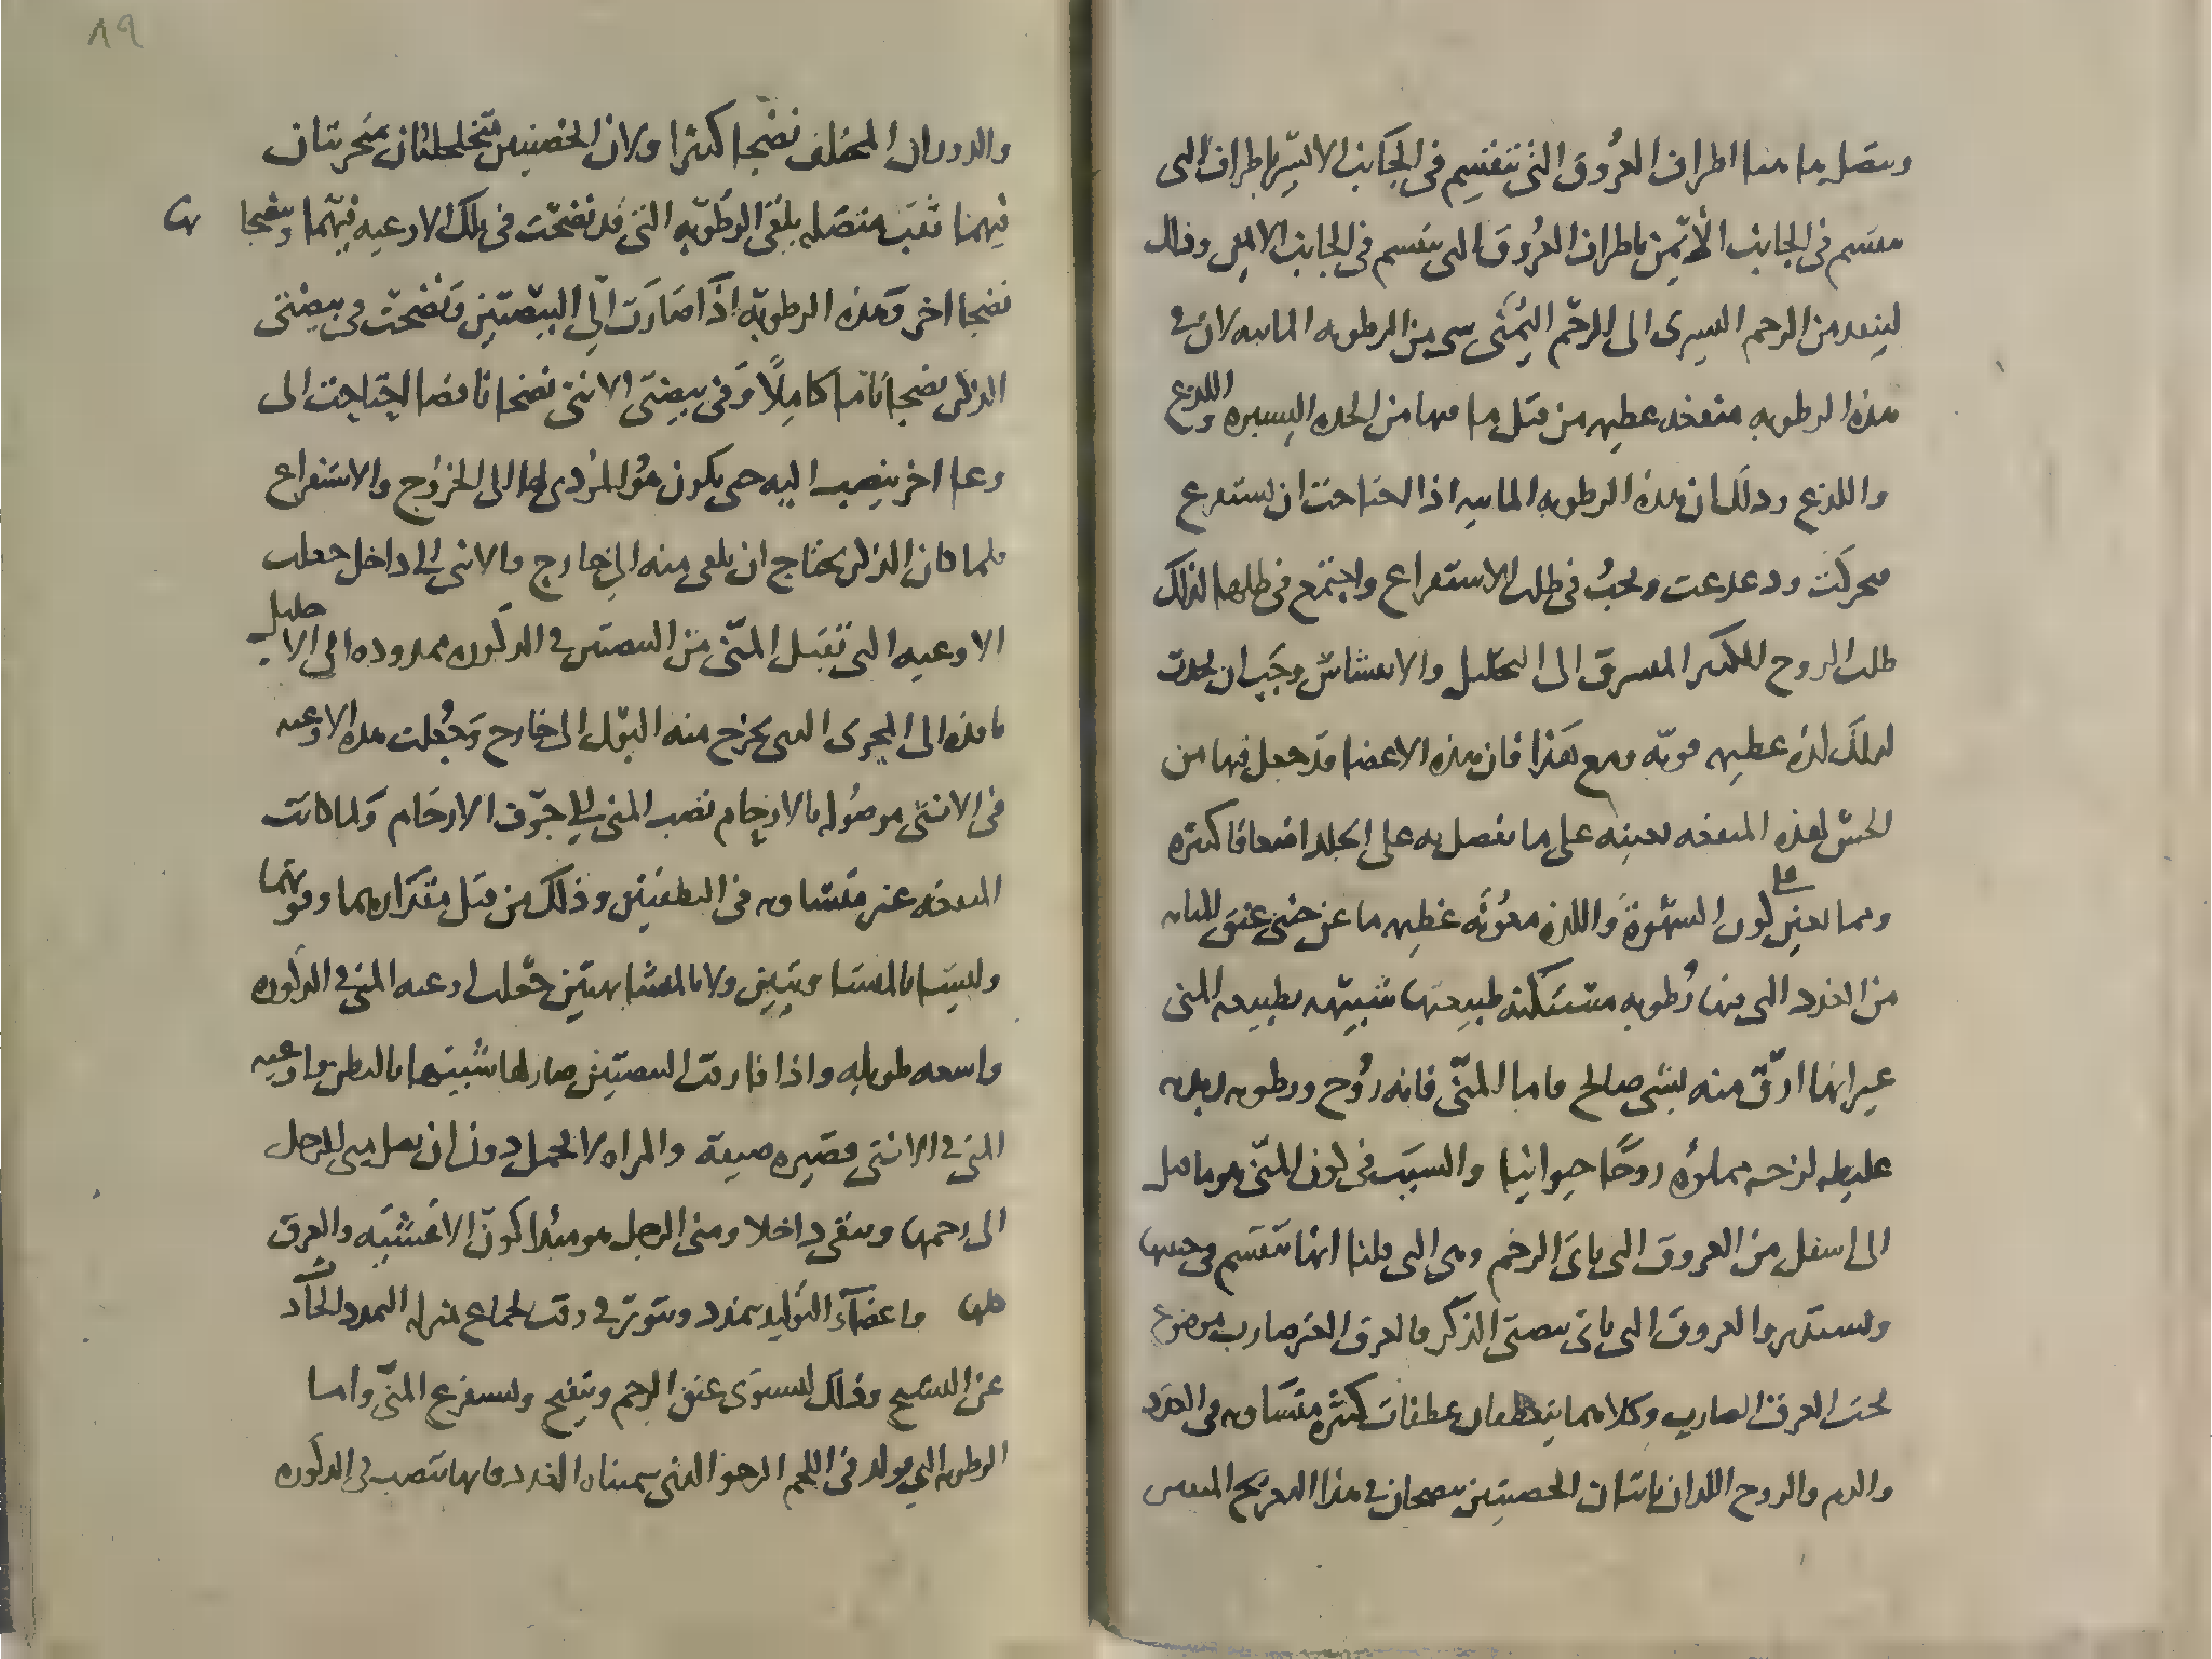 وىتصل بها هنا اطراف العُروق التى تنقسِم فى الجَانب الايسَر باطراف التى
تنقسم فى الجانب الأيمن باطراف العُروق التى تنقسم فى الجانب الايمن وذلك
لينفد من الرحم اليسرى الى الرحم اليُمنى شى من الرطوبه المائيه لان فى
هذه الرطوبه منفعه عظيمه من قبل ما فيها من الحده اليسيره واللذع
واللذع وذلك ان هذه الرطوبه المائيه اذا احتاجت ان تستفرع
تحركت ودغدغت وتحبُ فى طلب الاستفراع واجتمع فى طلبها لذلك
طلب الروح الكثير المسرق الى التحليل والانفشاش وجَب ان تحدث
لذلك لذه عظيمه قويه ومع هَذا فان هذه الاعضا قد جعل فيها من
الحس لهذه المنفعه بعينه على ما تفصل به على الجلد اضعافا كثيره
ومما يعين على لون الشهوة واللذه معوُنه عظيمه ما عن جنبى عنق المثانه
من الغدد التى فيها رُطوبه مستكنه طبيعتها شبيهه بطبيعه المنى
غير انها ارقّ منه بشى صالح فاما المنّى فانه رُوح ورطوبه
غليظه لزجه مملؤه روحًا حيوانيا والسبَب فى لون المنّى هو ما
الى اسفل من العروق التى ياتى الرحم وهى التى قلنا انها تنقسم فى جنبيها
وتستدير والعروق التى ياتى بيضتى الذكر فالعرق الغير ضارب موضوع
تحت العرق الضارب وكلاهما ينعطفان عطفات كثيره متسَاويه فى العدد
والدم والروح اللذان ياتيان الخصيتين ينضجان فى هذا التعريج
والدوران المختلف نضجا كثيرا ولان الخصيتين متخلخلتان متحربتان
فيهما ثقب متصَله يلقى الرطوبه التى قد نضجت فى تلك الاوعيه فيهما وينضجا
نضجا اخر وهذه الرطوبه اذَا صَارَت الِى البيضتين ونضجت فى بيضتى
الذكر نضجا تاما كامِلًا وفى بيضتى الانثى نضجا ناقصا احتاجت الى
وعا اخر ينصب اليه حتى يكون هوُ المؤدى لها الى الخروج والاستفراع
فلما كان الذكر يحتاج ان يلقى منه الى خارج والانثى الى داخل جعلت
الاوعيه التى تقبل المنّى من البيضتين فى الذكوره ممدوده الى الاحليل
نافذه الى المجرى الذى يخرج منه البول الى خارج وجُعلت هذه الاوعيه
فى الانثى موصُوله بالارحام تصب المنى الى جوف الارحَام ولما كانت
المنفعه غير متساويه فى البطنين وذلك من قبل مقدارهما وقوتهما
وليستا بالمتساويتين ولا بالمتشابهتين جعلت اوعيه المنى فى الذكوره
واسعه طويله واذا فارقت البيضتين صار لها شبيها بالبطن واوعيه
المنى فى الانثى قصيره ضيقة والمراه لا تحمل دون ان يصل منى الرجل
الى رحمها ويبقى داخلا ومنى الرجل هو مبدا كون الاغشيه والعرق
كلها واعضآء التوليد تمدد وتتوتر فى وقت الجماع بمنزله التمدد الحادث
عن التشنج وذلك ليستوى عنق الرحم وينفتح ويستفرغ المنّى واما
الرطوبه التى تولد فى اللحم الرخو الذى سميناه الغدد فانها تنصب فى الذكوره